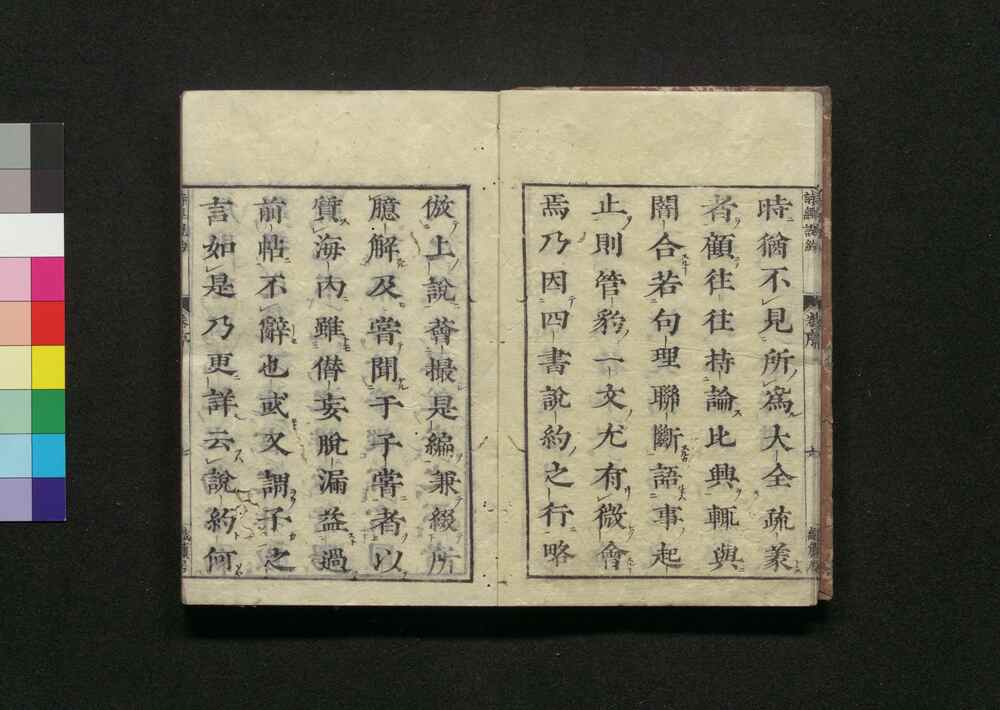 時猶不見所為大全疏義
者顧往往持論比興輒與
闇合若句理聯斷語事起
止則管豹一文尤有微會
焉乃因四書說約之行略
倣上說薈撮是編兼綴所
臆解及嘗聞于子嘗者以
質海內雖僭妄脫漏益過
前帖不辭也或又謂予之
言如是乃更詳云說約何